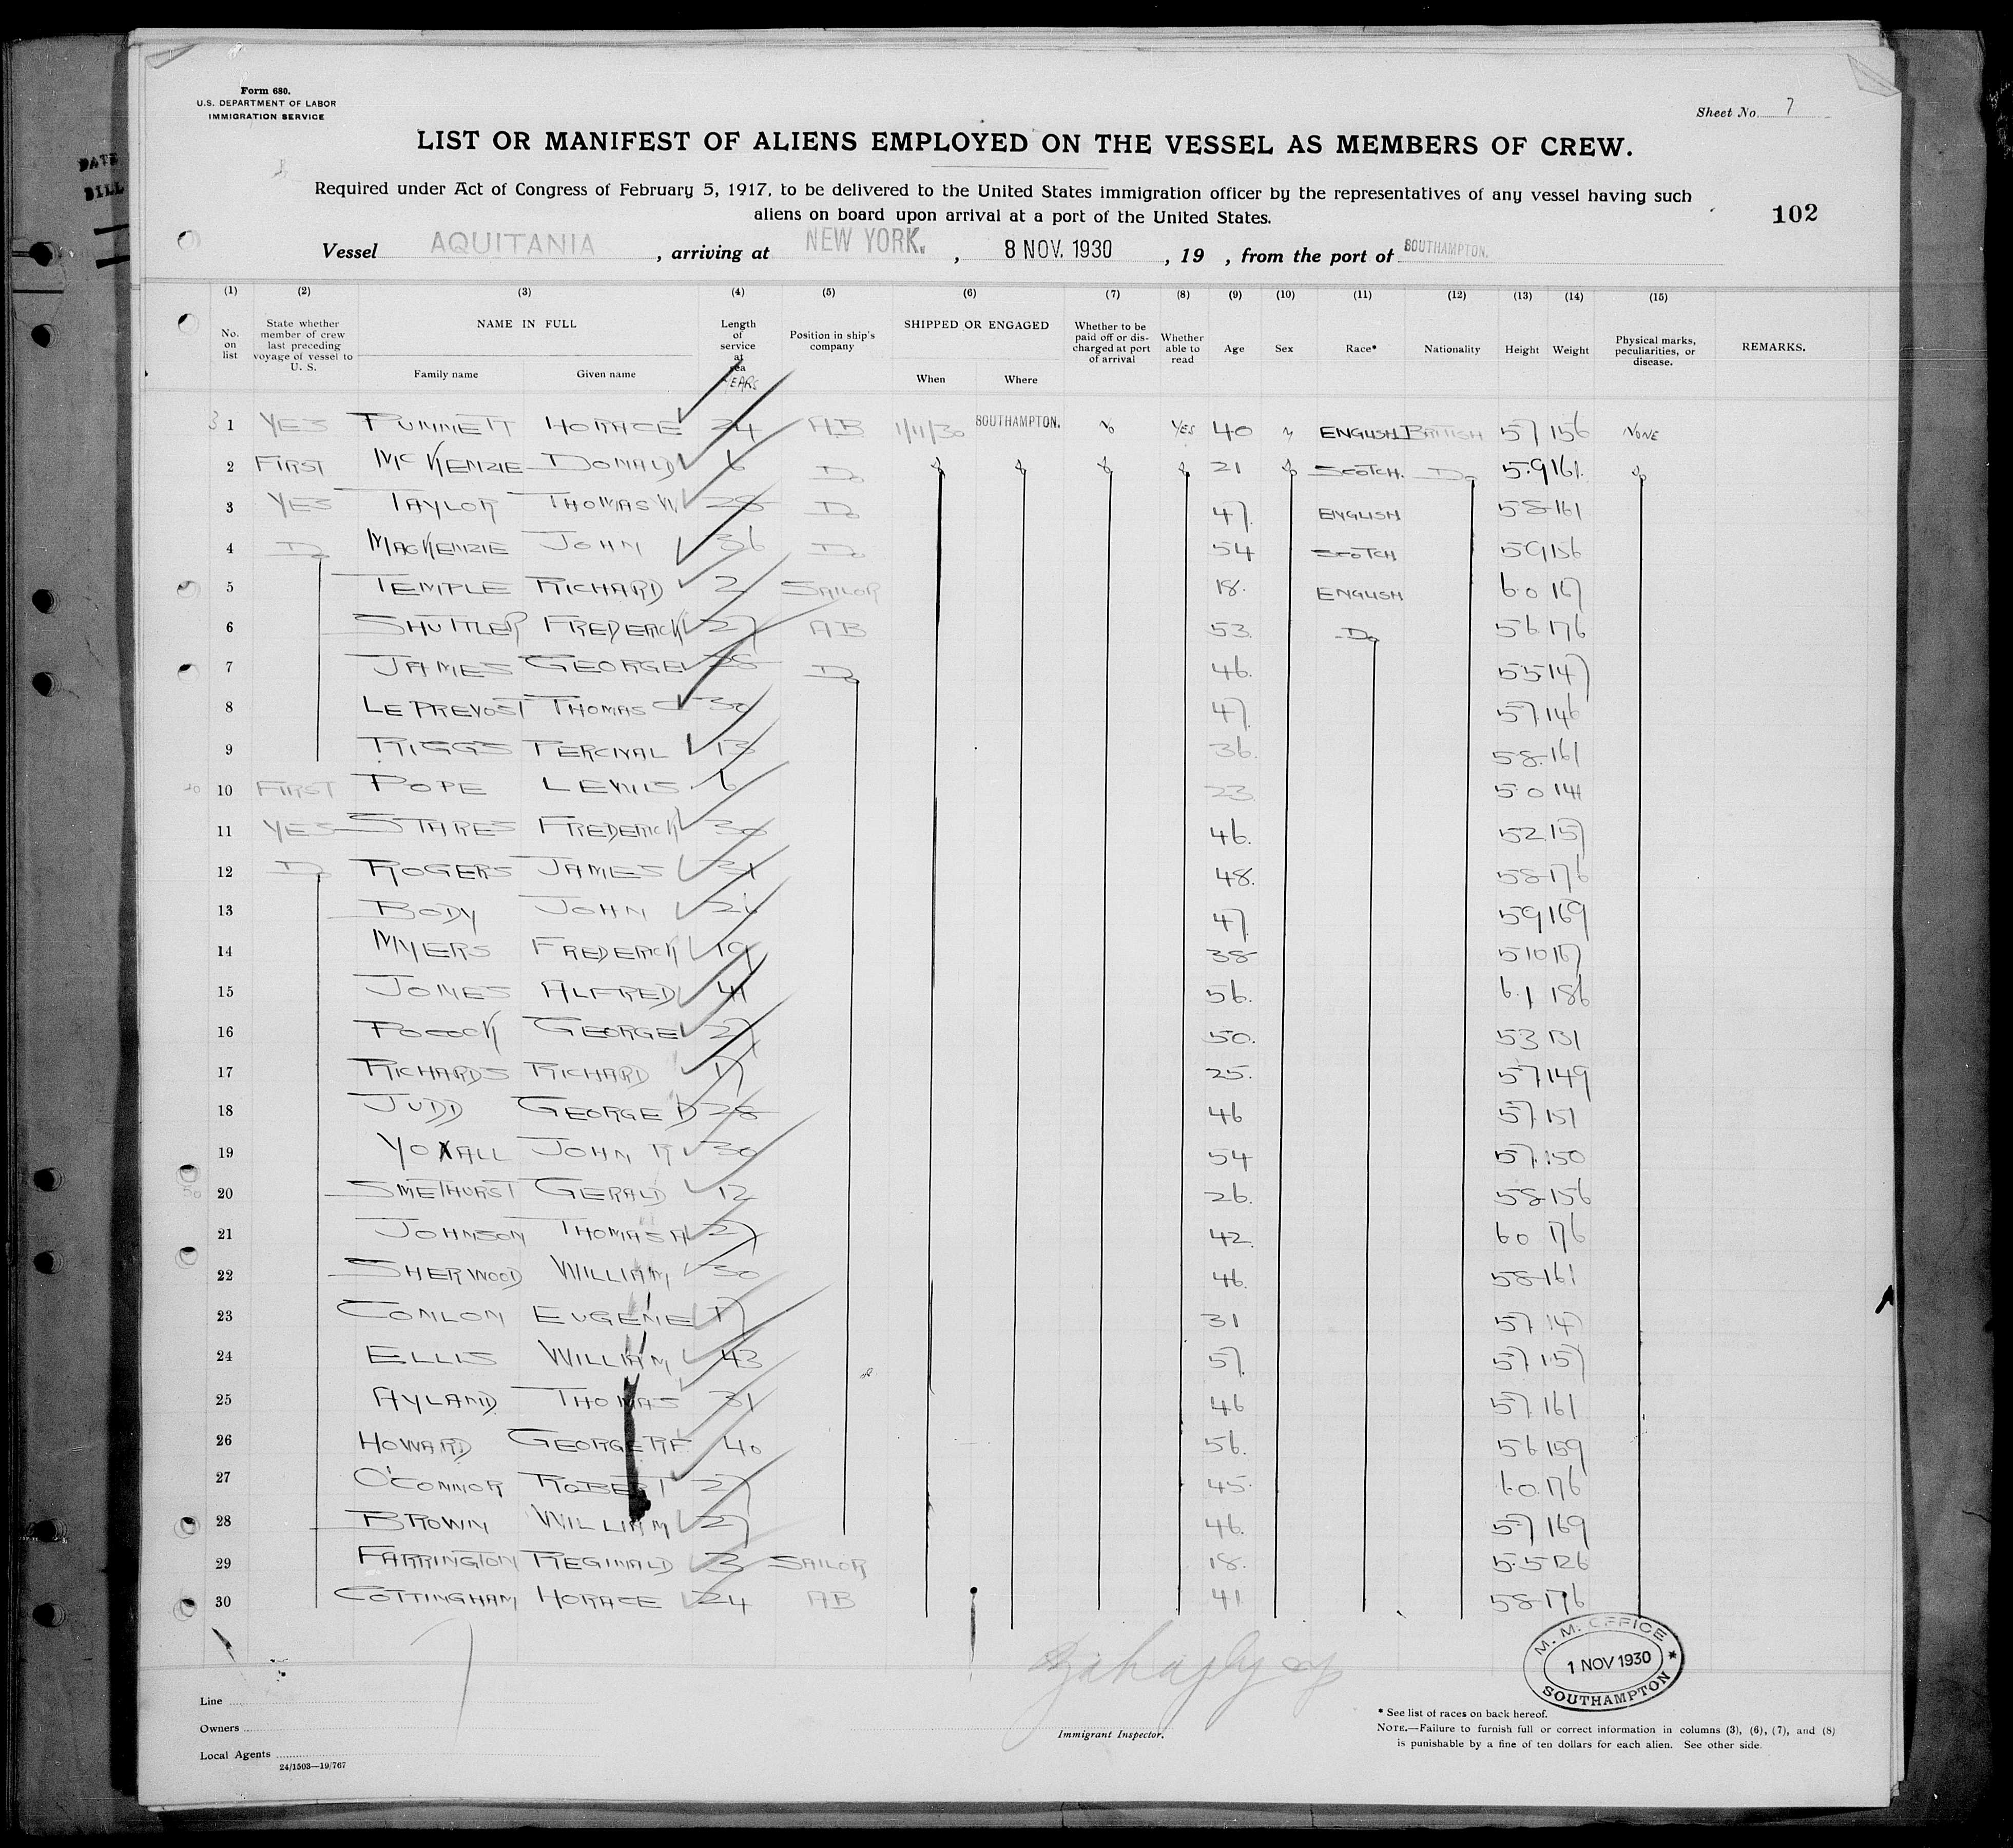 Form 680.
U.S. DEPARTMENT OF LABOR
IMMIGRATION SERVICE
Sheet No. 7
DATE
BILL
LIST OR MANIFEST OF ALIENS EMPLOYED ON THE VESSEL AS MEMBERS OF CREW.
Required under Act of Congress of February 5, 1917, to be delivered to the United States immigration officer by the representatives of any vessel having such
aliens on board upon arrival at a port of the United States.
102
Vessel AQUITANIA, arriving at NEW YORK., 8 NOV. 1930, 19 , from the port of SOUTHAMPTON.
(1) (2) (3) (4) (5) (6) (7) (8) (9) (10) (11) (12) (13) (14) (15)
No. on list State whether member of crew last preceding voyage of vessel to U. S. NAME IN FULL Family name Given name Length of service at sea YEARS Position in ship's company SHIPPED OR ENGAGED When Where Whether to be paid off or discharged at port of arrival Whether able to read Age Sex Race* Nationality Height Weight Physical marks, peculiarities, or disease. REMARKS.
1 YES PUNNETT HORACE 24 AB 1/11/30 SOUTHAMPTON. No YES 40 M ENGLISH BRITISH 57 156 NONE
2 FIRST McKENZIE DONALD 6 Do Do Do Do Do 21 Do SCOTCH. Do 5.9 161 Do
3 YES TAYLOR THOMAS W 28 Do 47. ENGLISH 58 161
4 Do MACKENZIE JOHN 36 Do 54 SCOTCH 59 156
5 TEMPLE RICHARD 2 SAILOR 18. ENGLISH 6.0 167
6 SHUTTLER FREDERICK 27 AB 53. Do 56 176
7 JAMES GEORGE 28 Do 46. 55 147
8 LE PREVOST THOMAS C 30 47. 57. 146
9 RIGGS PERCIVAL 13 36. 58. 161
10 FIRST POPE LEWIS 6 23. 5.0 141
11 YES STARES FREDERICK 30 46. 52 157
12 Do ROGERS JAMES 31 48. 58 176
13 BODY JOHN 47. 59 169
14 MYERS FREDERICK 19 38 510 167
15 JONES ALFRED 41 56. 6.1 186
16 POCOCK GEORGE 27 50. 53 131
17 RICHARDS RICHARD 17 25. 57 149
18 JUDD GEORGE D 28 46 57. 151
19 YOXALL JOHN R 30 54 57. 150
20 SMETHURST GERALD 12 26. 58 156
21 JOHNSON THOMAS A 27 42. 60 176
22 SHERWOOD WILLIAM 30 46. 58 161
23 CONLON EUGENE 17 31 57 147
24 ELLIS WILLIAM 43 57. 57 157
25 HYLAND THOMAS 31 46 57 161
26 HOWARD GEORGE R F 40 56. 56 159
27 O'CONNOR ROBERT 27 45. 6.0. 176
28 BROWN WILLIAM 27 46. 57 169
29 FARRINGTON REGINALD 3 SAILOR 18. 5.5 126
30 COTTINGHAM HORACE 24 AB 41. 58 176
M. M. OFFICE
1 NOV 1930
SOUTHAMPTON
Line
Owners
Local Agents
24/1503—19/767
Immigrant Inspector.
* See list of races on back hereof.
NOTE.—Failure to furnish full or correct information in columns (3), (6), (7), and (8)
is punishable by a fine of ten dollars for each alien. See other side.